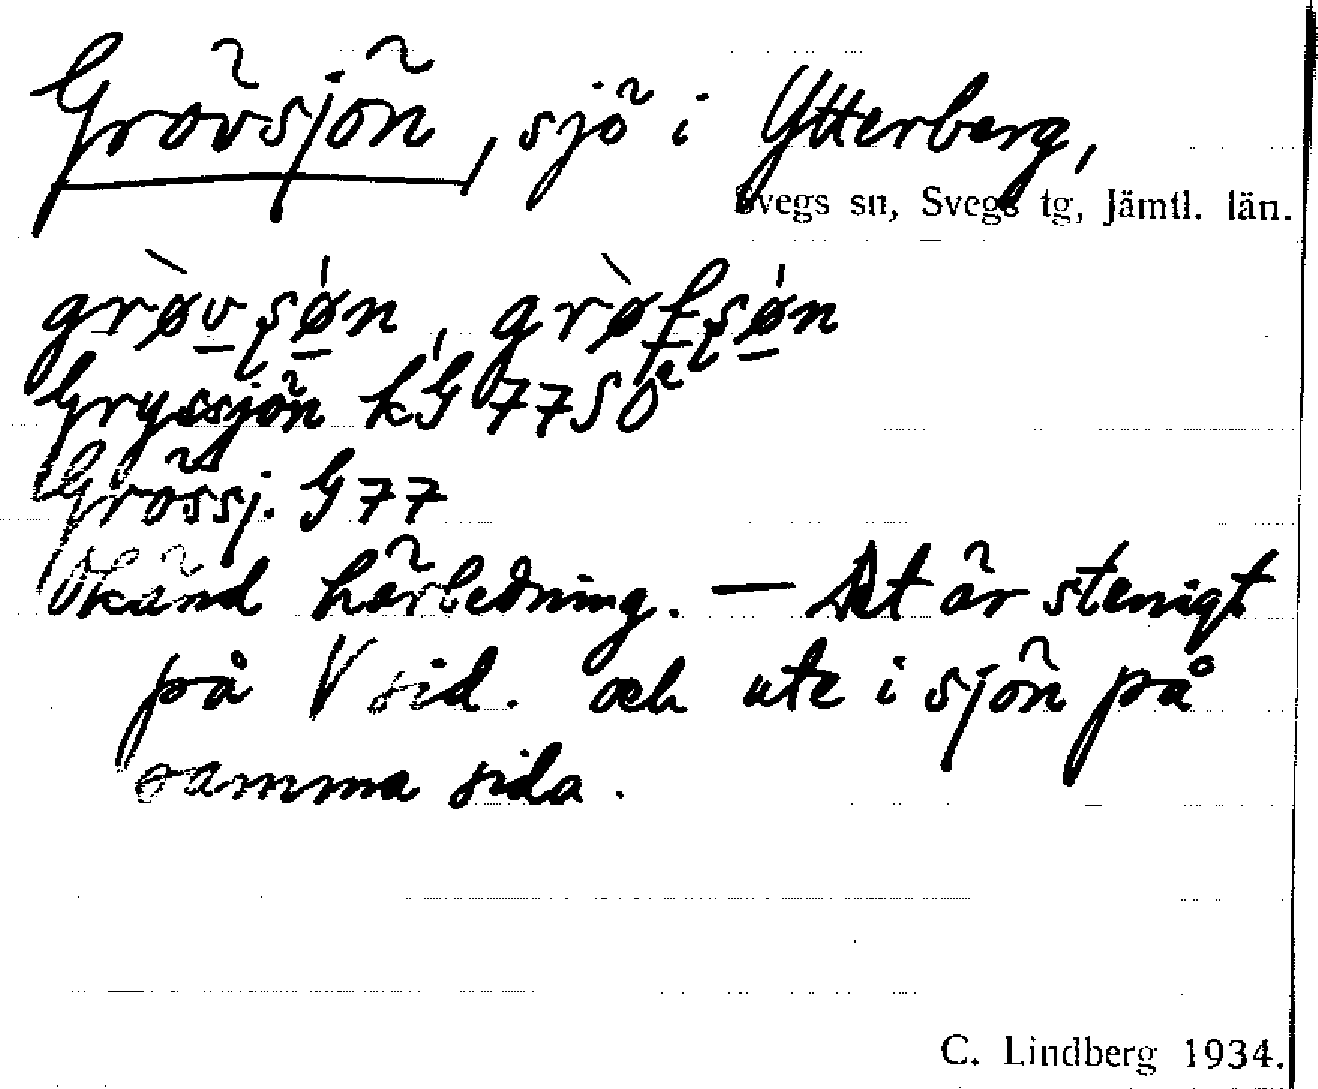 Grövsjön, sjö i Ytterberg,
Svegs sn, Svegs tg, Jämtl. län.
grø̀vsø̀n, grø̀fsø̀n
Gryssjön kG 77SO
Grössj. G 77
Okänd härledning. — Det är stenigt
på V sid. och ute i sjön på
samma sida.
C. Lindberg 1934.